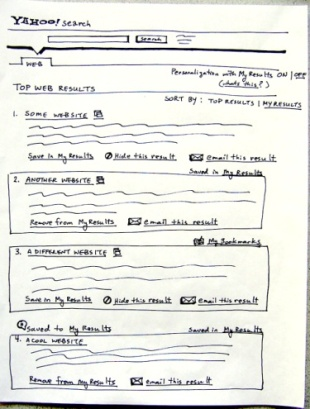 YAHOO! search
search
WEB
Personalization with My Results ON | OFF
(what's this?)
TOP WEB RESULTS
SORT BY: TOP RESULTS | MY RESULTS
1. SOME WEBSITE
Save in My Results Hide this result email this result
Saved in My Results
2. ANOTHER WEBSITE
Remove from My Results email this result
My Bookmarks
3. A DIFFERENT WEBSITE
Save in My Results Hide this result email this result
Saved to My Results Saved in My Results
4. A COOL WEBSITE
Remove from My Results email this result